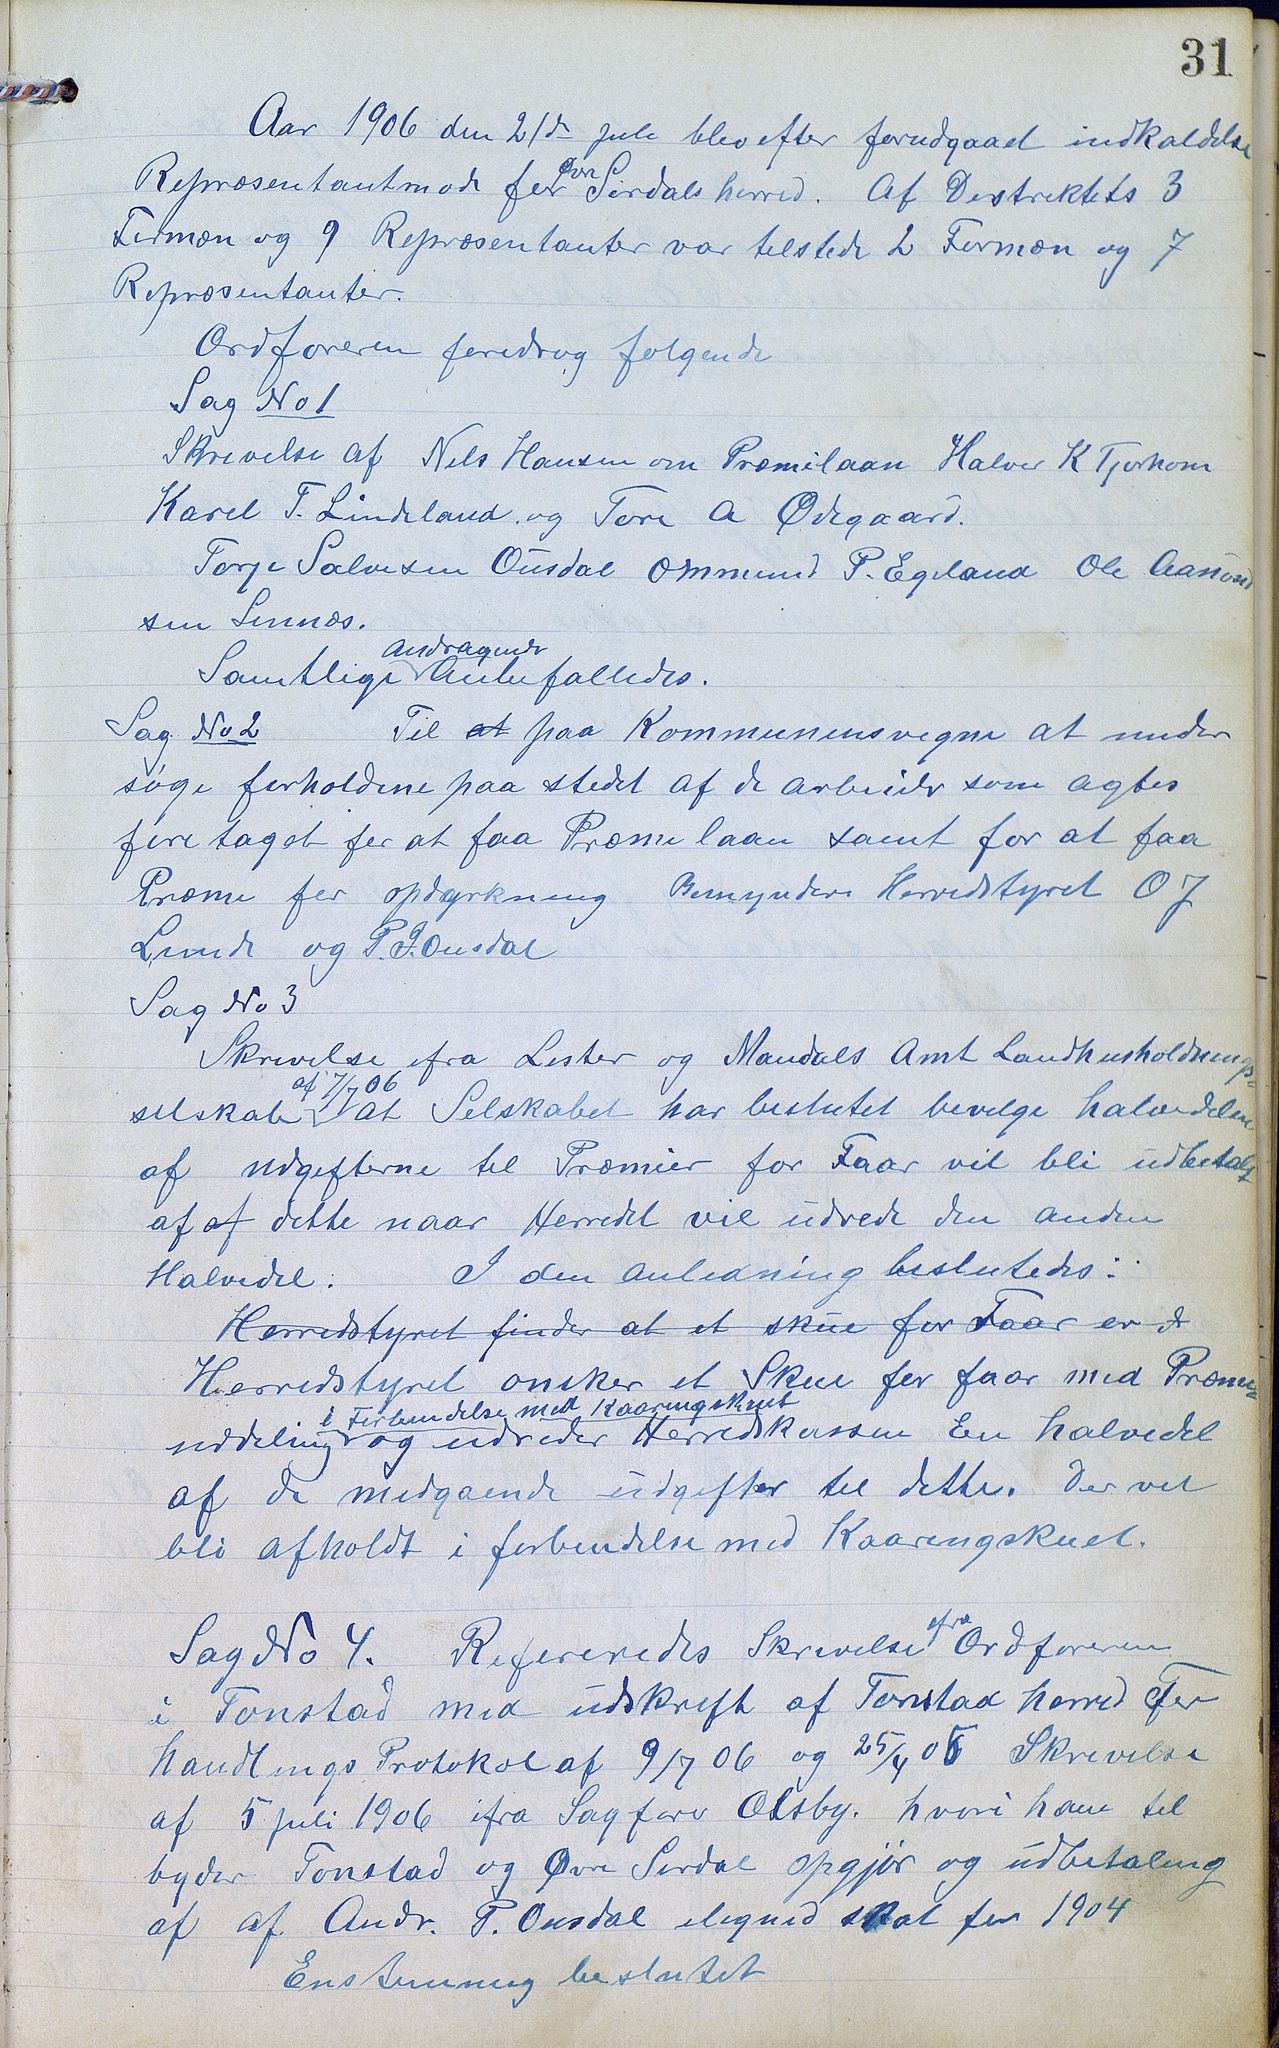 31
Aar 1906 den 21de juli blev efter forudgaaet indkaldelse
Repræsentantmøde for Øvre Sirdals herred. Af Destriktets 3
Formæn og 9 Repræsentanter var tilstede 2 Formæn og 7
Repræsentanter.
Ordføreren foredrog følgende
Sag No 1
Skrivelse af Nils Hansen om Præmilaan Halvor K Tjorhom
Karel T. Lindeland og Tore A Ødegaard.
Torje Salvesen Ousdal Ommund P. Egeland Ole Aanund
sen Sinnæs.
Samtlige andragende Anbefalledes.
Sag No 2 Til at paa Kommunens vegne at under
søge forholdene paa stedet af de arbeider som agtes
foretaget for at faa Præmilaan samt for at faa
Præmi for opdyrkning Bemyndes Herredstyret O J
Lunde og P. J. Ousdal
Sag No 3
Skrivelse ifra Lister og Mandals Amt Landhusholdnings-
selskab af 7/7 06 at Selskabet har beslutet bevilge halvdelen
af udgifterne til Præmier for Faar vil bli udbetalt
af af dette naar Herredet vil udrede den anden
Halvedel. I den anledning beslutedes:
Herredstyret finder at et skue for Faar er d
Herredstyret ønsker et Skue for faar med Præmi-
uddeling i Forbindelse med Kaaringskuet og udreder Herredskassen En halvedel
af de medgaende udgifter til dette. Der vil
bli afholdt i forbindelse med Kaaringskuet.
Sag No 4. Refereredes Skrivelse ifra Ordføreren
i Tonstad med udskrift af Tonstad herred For
handlings Protokol af 9/7 06 og 25/4 05 Skrivelse
af 5 juli 1906 ifra Sagfører Olsby. hvori han til
byder Tonstad og Øvre Sirdal opgjør og udbetaling
af af Andr. P. Ousdal ilegned skat for 1904
Enstemmig beslutet